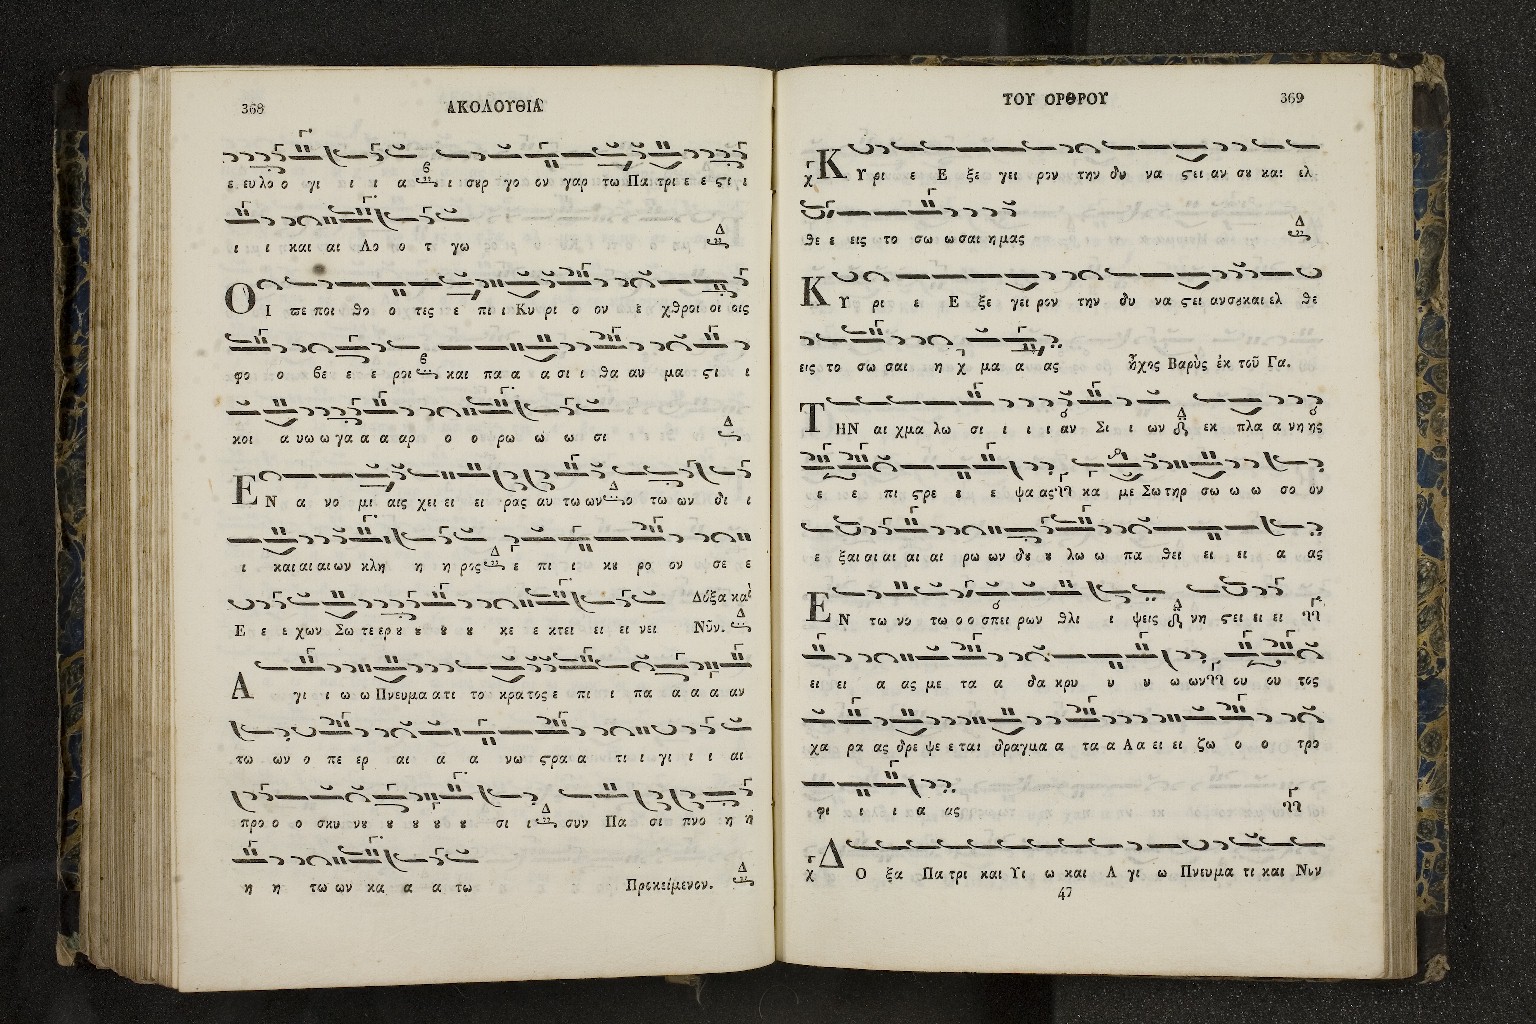 368
ΑΚΟΛΟΥΘΙΑ
ε ευλο ο γι ι ι ι α ι συρ γο ον γαρ τω Πα τρι ε ε ϛι ι
ι ι και αι Λο ο τ γω
ΟΙ πε ποι θο ο τες ε πι ι Κυ ρι ο ον ε χθροι οι οις
φο ο βε ε ε ροι και πα α α σι ι θα αυ μα ϛι ι
κοι α υω ω γα α α αρ ο ο ρω ω ω σι
ΕΝ α νο μι αις χει ει ει ρας αυ τω ων ο τω ων δι ι
ι και αι αι ων κλη η η ρος ε πι ι κυ ρο ον σε ε
Ε ε ε χων Σω τε ερ ȣ ȣ ȣ ȣ κε ε κτει ει ει νει
Δόξα καὶ
Νῦν.
Α γι ι ω ω Πνευμα ατι το κρα τος ε πι ι πα α α α αν
τω ων ο πε ερ αι α α νω ϛρα α τι ι γι ι ι αι
προ ο ο σκυ νȣ ȣ ȣ ȣ ȣ σι ι συν Πα σι πνο η η
η η τω ων κα α α τω
Προκείμενον.
ΤΟΥ ΟΡΘΡΟΥ
369
ΚΥ ρι ε Ε ξε γει ρον την δυ να ϛει αν σȣ και ελ
θε ε εις το σω ω σαι η μας
ΚΥ ρι ε Ε ξε γει ρον την δυ να ϛει αν σȣ και ελ θε
εις το σω σαι η χ μα α ας
ἦχος Βαρὺς ἐκ τοῦ Γα.
ΤΗΝ αι χμα λω σι ι ι ι αν Σι ι ων εκ πλα α νη ης
ε ε πι ϛρε ε ε ψα ας κα με Σωτηρ σω ω ω σο ον
ε ξαι αι αι αι αι ρω ων δȣ ȣ λω ω πα θει ει ει α ας
ΕΝ τω νο τω ο ο σπει ρων θλι ι ψεις νη ϛει ει ει
ει ει α ας με τα α δα κρυ υ υ ω ων ου ου τος
χα ρα ας δρε ψε ε ται δραγμα α τα α Α α ει ει ζω ο ο τρο
φι ι ι α ας
ΔΟ ξα Πα τρι και Υι ω και Α γι ω Πνευμα τι και Νυν
47